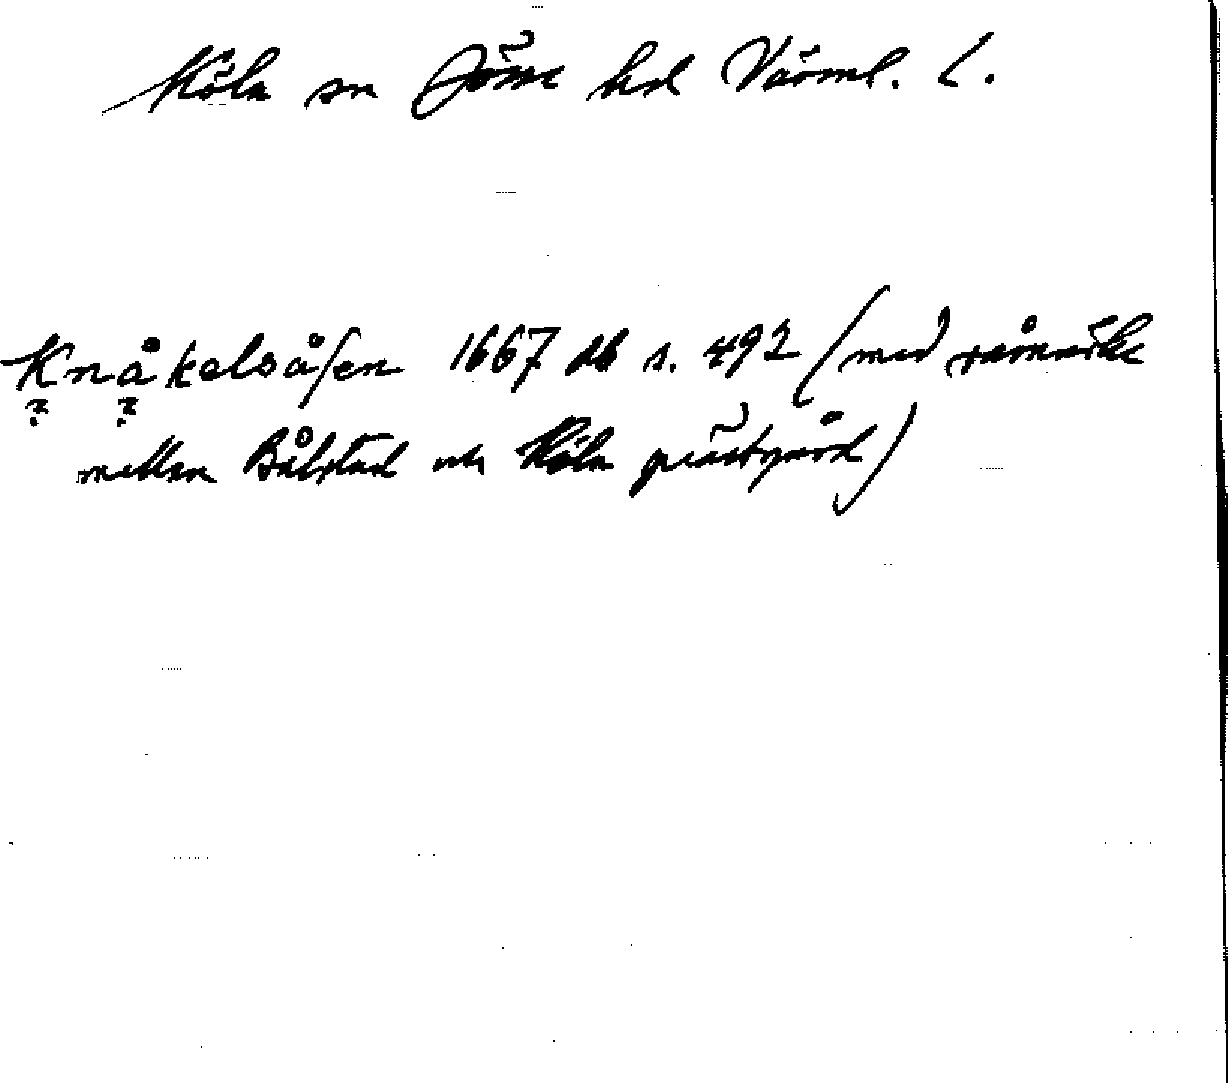 Köla sn Jösse hd Värml. l.
Knåkelsåsen 1667 db s. 492 (med råmärke
? ?
mellan Bålstad och Köla prästgård)